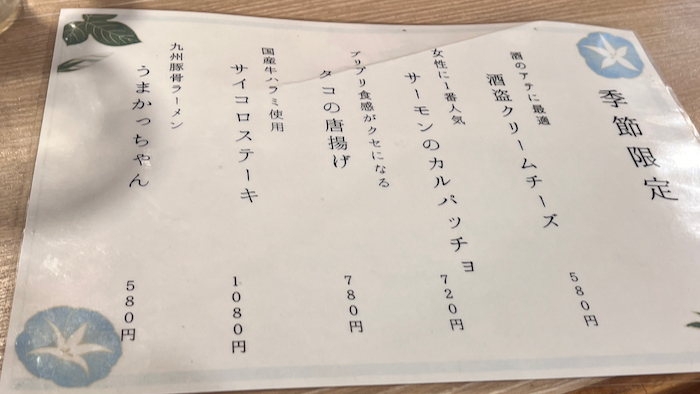 季節限定
酒のアテに最適
酒盗クリームチーズ
580円
女性に1番人気
サーモンのカルパッチョ
720円
プリプリ食感がクセになる
タコの唐揚げ
780円
国産牛ハラミ使用
サイコロステーキ
1080円
九州豚骨ラーメン
うまかっちゃん
580円